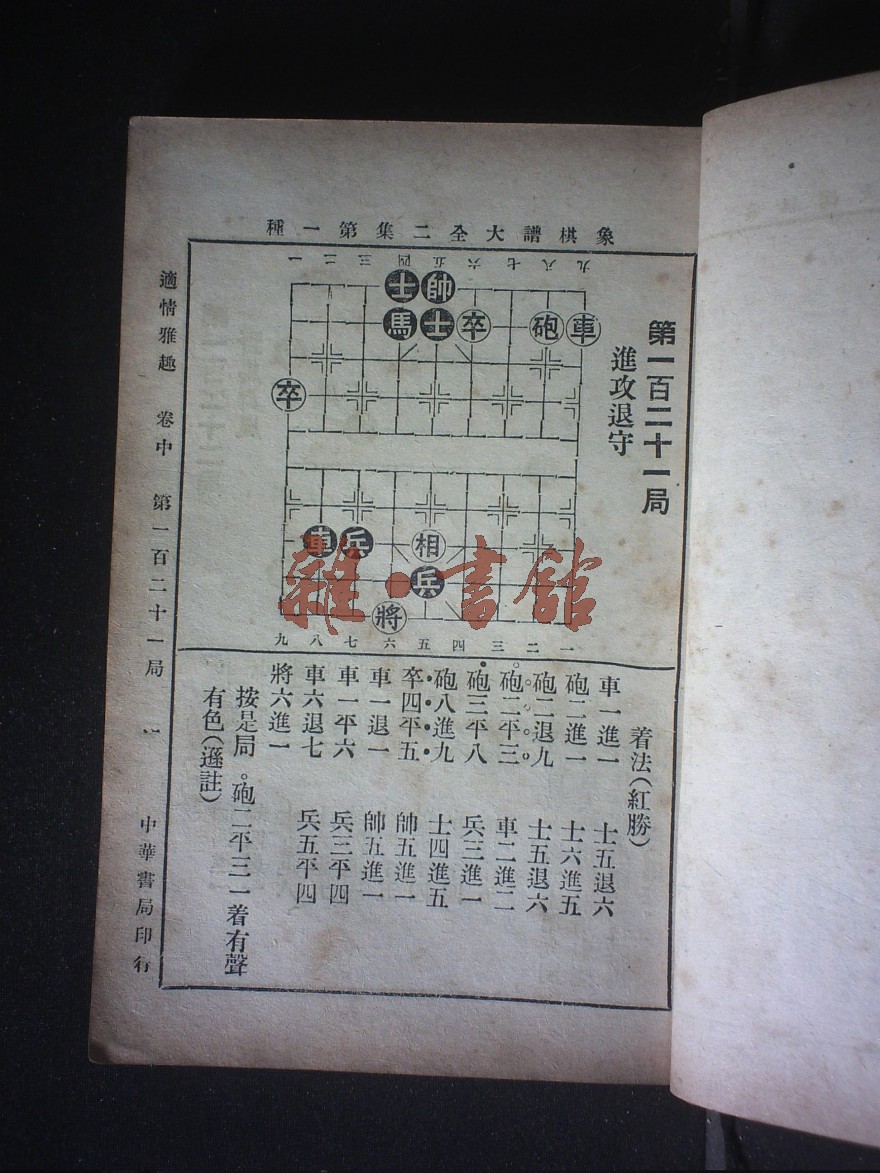 象棋譜大全二集第一種
第一百二十一局
進攻退守
一二三四五六七八九
士帥
馬士卒砲車
卒
車兵相
兵
將
九八七六五四三二一
着法(紅勝)
車一進一 士五退六
砲二進一 士六進五
砲二退九 士五退六
砲二平三 車二進二
砲三平八 兵三進一
砲八進九 士四進五
卒四平五 帥五進一
車一退一 帥五進一
車一平六 兵三平四
車六退七 兵五平四
將六進一
按是局。砲二平三一着有聲
有色(遜註)
適情雅趣 卷中 第一百二十一局
中華書局印行
雜·書館